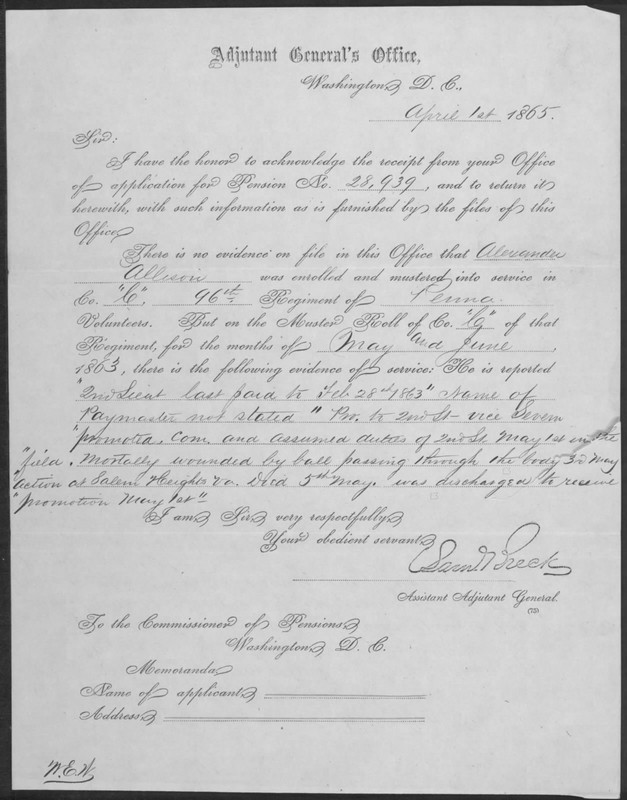 Adjutant General's Office,
Washington, D. C.,
April 1st 1865.
Sir:
I have the honor to acknowledge the receipt from your Office
of application for Pension No. 28,939, and to return it
herewith, with such information as is furnished by the files of this
Office.
There is no evidence on file in this Office that Alexander
Allison was enrolled and mustered into service in
Co. "C", 96th Regiment of Penna
Volunteers. But on the Muster Roll of Co. "G" of that
Regiment, for the months of May and June,
1863, there is the following evidence of service: He is reported
"2nd Lieut last paid to Feb 28th 1863" Name of
Paymaster not stated" Pro. to 2nd Lt vice
"promoted. Com. and assumed duties of 2nd Lt. May 1st in the
"field. Mortally wounded by ball passing through the body 3rd May
"action at Salem Heights Va. Died 5th May. was discharged to receive
"promotion May 1st"
I am, Sir, very respectfully,
Your obedient servant,
Saml Breck
Assistant Adjutant General.
To the Commissioner of Pensions,
Washington, D. C.
Memoranda
Name of applicant,
Address,
W.E.W